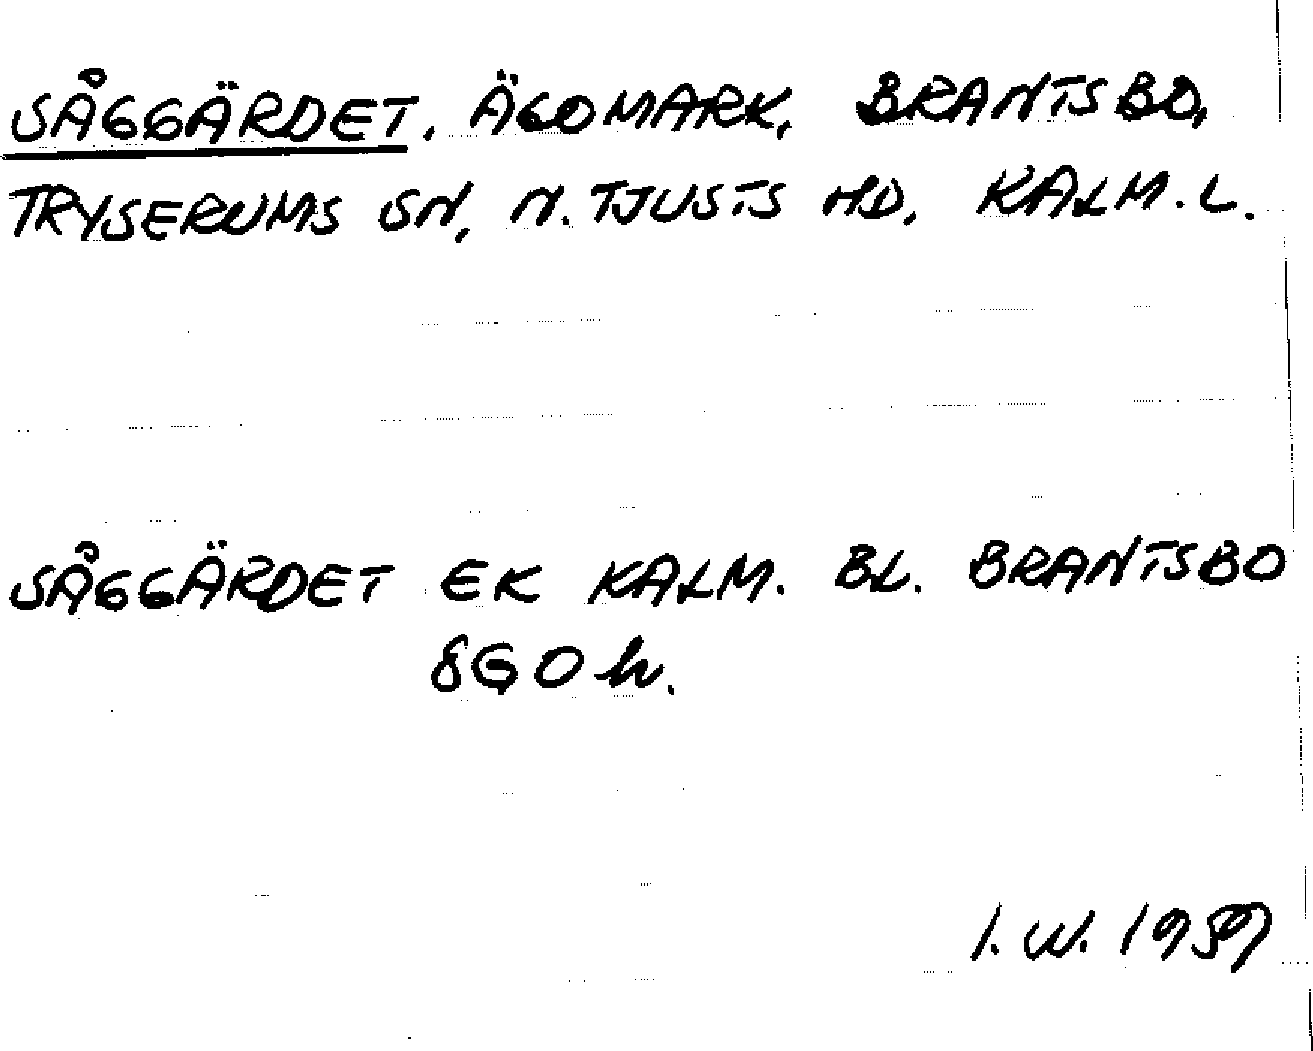 SÅGGÄRDET. ÄGOMARK, BRANTSBO,
TRYSERUMS SN, N. TJUSTS HD, KALM. L.
SÅGGÄRDET EK KALM. BL. BRANTSBO
8G0h.
I. W. 1959